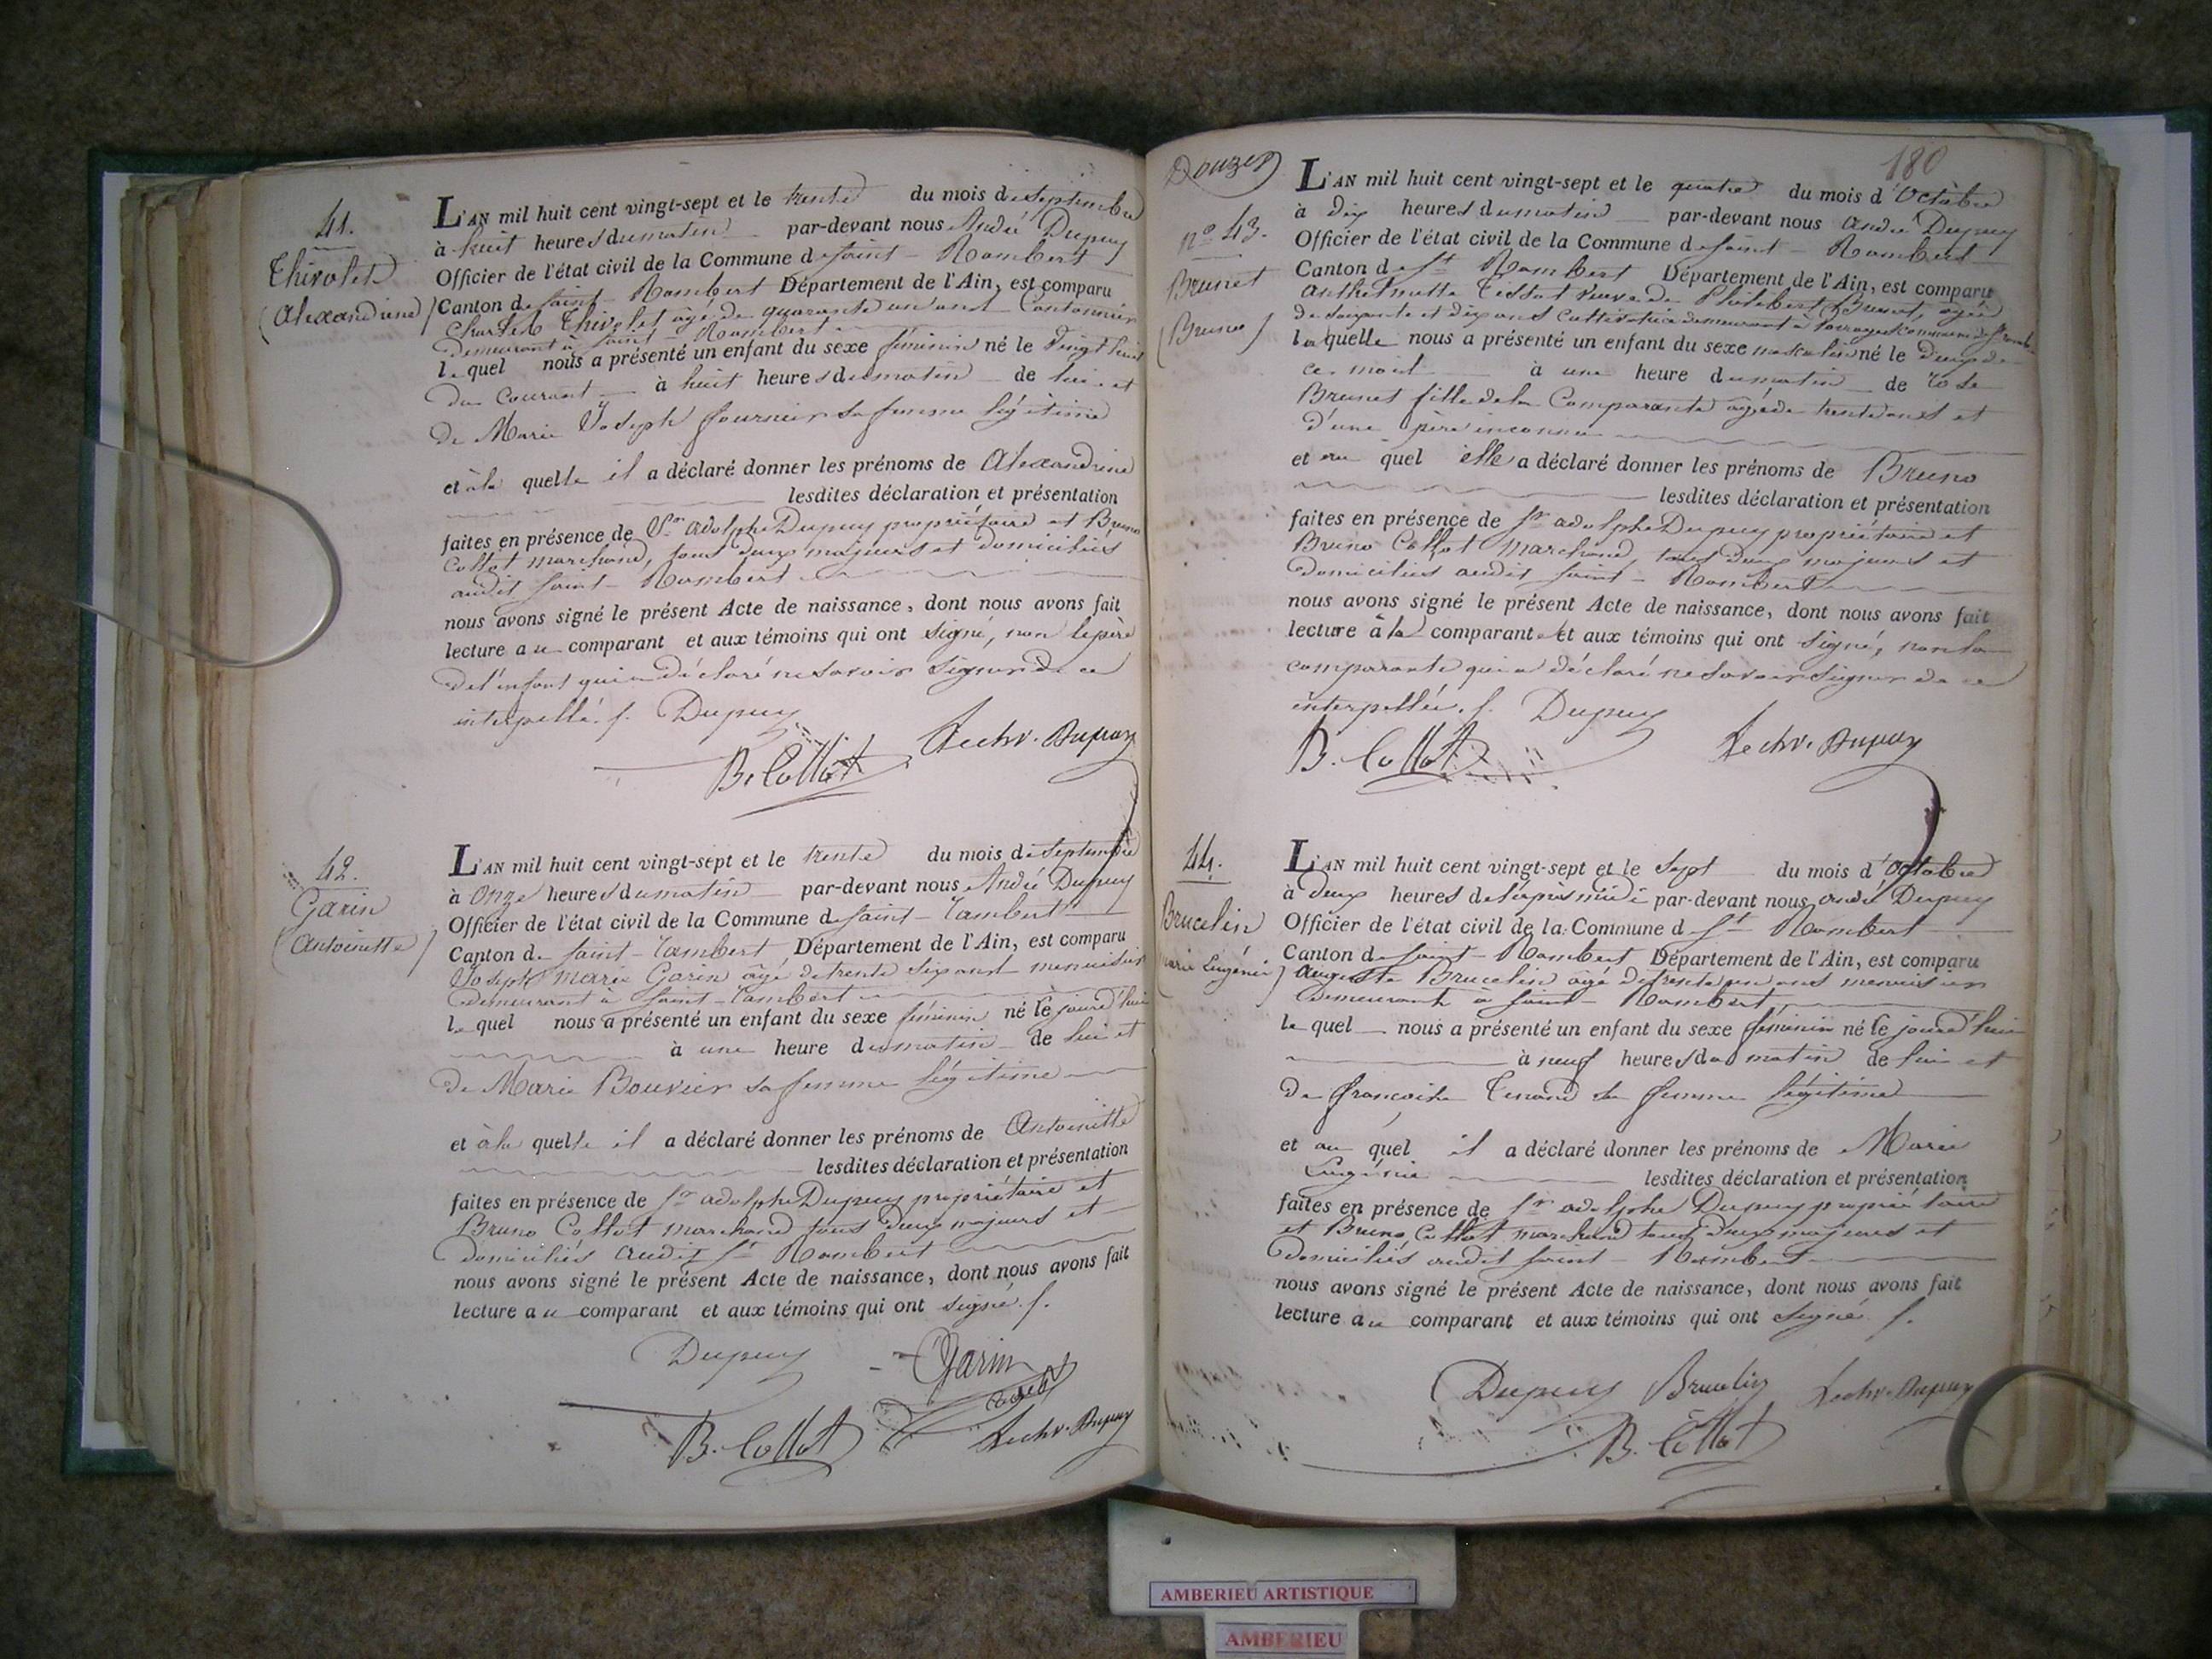 41.
Thivolet
(Alexandrine)
L'AN mil huit cent vingt-sept et le trente du mois de Septembre
à huit heures du matin par-devant nous André Dupuy
Officier de l'état civil de la Commune de Saint-Rambert
Canton de Saint-Rambert Département de l'Ain, est comparu
Charles Thivolet âgé de quarante un ans Cantonnier
demeurant à Saint-Rambert
lequel nous a présenté un enfant du sexe féminin né le vingt huit
du Courant à huit heures du matin de lui et
de Marie Joseph fournier sa femme légitime
et à la quelle il a déclaré donner les prénoms de Alexandrine
lesdites déclaration et présentation
faites en présence de Sr. adolphe Dupuy propriétaire et Bruno
Collot marchand, tous deux majeurs et domiciliés
audit Saint-Rambert
nous avons signé le présent Acte de naissance, dont nous avons fait
lecture au comparant et aux témoins qui ont signé, non le père
de l'enfant qui a déclaré ne savoir signer de ce
interpellé. Dupuy
B. Collot Dupuy
42.
Garin
(Antoinette)
L'AN mil huit cent vingt-sept et le trente du mois de Septembre
à Onze heures du matin par-devant nous André Dupuy
Officier de l'état civil de la Commune de Saint-Rambert
Canton de Saint-Rambert Département de l'Ain, est comparu
Joseph Marie Garin âgé de trente six ans menuisier
demeurant à Saint-Rambert
lequel nous a présenté un enfant du sexe féminin né le jourd'hui
à une heure du matin de lui et
de Marie Bouvier sa femme légitime
et à la quelle il a déclaré donner les prénoms de Antoinette
lesdites déclaration et présentation
faites en présence de Sr adolphe Dupuy propriétaire et
Bruno Collot marchand tous deux majeurs et
domiciliés audit St Rambert
nous avons signé le présent Acte de naissance, dont nous avons fait
lecture au comparant et aux témoins qui ont signé.
Dupuy Garin
B. Collot Dupuy
180
Douzes
no 43.
Brunet
(Bruno)
L'AN mil huit cent vingt-sept et le quatre du mois d'Octobre
à dix heures du matin par-devant nous André Dupuy
Officier de l'état civil de la Commune de Saint-Rambert
Canton de St Rambert Département de l'Ain, est comparu
Anthelmette Tissot veuve de Philibert Brunet, agée
de soixante et dix ans Cultivatrice demeurant à commune de St Rambert
laquelle nous a présenté un enfant du sexe masculin né le deux de
ce mois à une heure du matin de Rose
Brunet fille de la Comparante agée de trente ans et
d'une père inconnu
et au quel elle a déclaré donner les prénoms de Bruno
lesdites déclaration et présentation
faites en présence de Sr adolphe Dupuy propriétaire et
Bruno Collot Marchand, tous deux majeurs et
domiciliés audit Saint-Rambert
nous avons signé le présent Acte de naissance, dont nous avons fait
lecture à la comparante et aux témoins qui ont signé, non la
comparante qui a déclaré ne savoir signer de ce
interpellée. Dupuy
B. Collot Dupuy
44.
Brucelin
Marie Eugénie)
L'AN mil huit cent vingt-sept et le Sept du mois d'Octobre
à deux heures de l'après midi par-devant nous André Dupuy
Officier de l'état civil de la Commune de St Rambert
Canton de Saint-Rambert Département de l'Ain, est comparu
Auguste Brucelin âgé de trente un ans menuisier
demeurant à Saint-Rambert
lequel nous a présenté un enfant du sexe féminin né le jourd'hui
à neuf heures du matin de lui et
de françoise Tenand sa femme légitime
et au quel il a déclaré donner les prénoms de Marie
Eugénie lesdites déclaration et présentation
faites en présence de Sr adolphe Dupuy propriétaire
et Bruno Collot marchand tous deux majeurs et
domiciliés audit Saint-Rambert
nous avons signé le présent Acte de naissance, dont nous avons fait
lecture au comparant et aux témoins qui ont signé.
Dupuy Brucelin Dupuy
B. Collot
AMBERIEU ARTISTIQUE
AMBERIEU